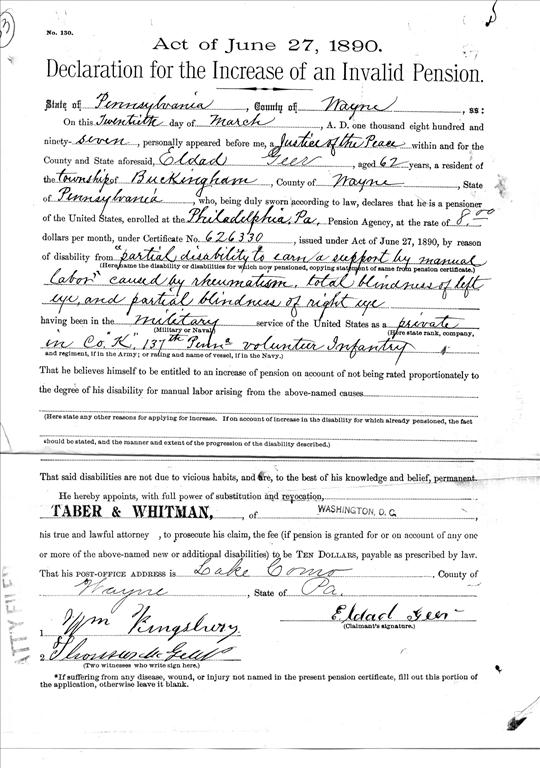 No. 130.
Act of June 27, 1890.
Declaration for the Increase of an Invalid Pension.
State of Pennsylvania, County of Wayne, ss:
On this Twentieth day of March, A. D. one thousand eight hundred and
ninety-seven, personally appeared before me, a Justice of the Peace within and for the
County and State aforesaid, Eldad Geer, aged 62 years, a resident of
the township of Buckingham, County of Wayne, State
of Pennsylvania, who, being duly sworn according to law, declares that he is a pensioner
of the United States, enrolled at the Philadelphia, Pa, Pension Agency, at the rate of 8.00
dollars per month, under Certificate No. 626330, issued under Act of June 27, 1890, by reason
of disability from "partial disability to earn a support by manual
(Here name the disability or disabilities for which now pensioned, copying statement of same from pension certificate.)
labor" caused by rheumatism, total blindness of left
eye, and partial blindness of right eye
having been in the military service of the United States as a private
(Military or Naval) (Here state rank, company,
in Co. "K," 137th Penna volunteer Infantry
and regiment, if in the Army; or rating and name of vessel, if in the Navy.)
That he believes himself to be entitled to an increase of pension on account of not being rated proportionately to
the degree of his disability for manual labor arising from the above-named causes
(Here state any other reasons for applying for increase. If on account of increase in the disability for which already pensioned, the fact
should be stated, and the manner and extent of the progression of the disability described.)
That said disabilities are not due to vicious habits, and are, to the best of his knowledge and belief, permanent.
He hereby appoints, with full power of substitution and revocation,
TABER & WHITMAN, of WASHINGTON, D. C.
his true and lawful attorney, to prosecute his claim, the fee (if pension is granted for or on account of any one
or more of the above-named new or additional disabilities) to be TEN DOLLARS, payable as prescribed by law.
That his POST-OFFICE ADDRESS is Lake Como, County of
Wayne, State of Pa.
1 Wm Kingsbury
Eldad Geer
(Claimant's signature.)
2
(Two witnesses who write sign here.)
*If suffering from any disease, wound, or injury not named in the present pension certificate, fill out this portion of
the application, otherwise leave it blank.
ATT'Y FILED